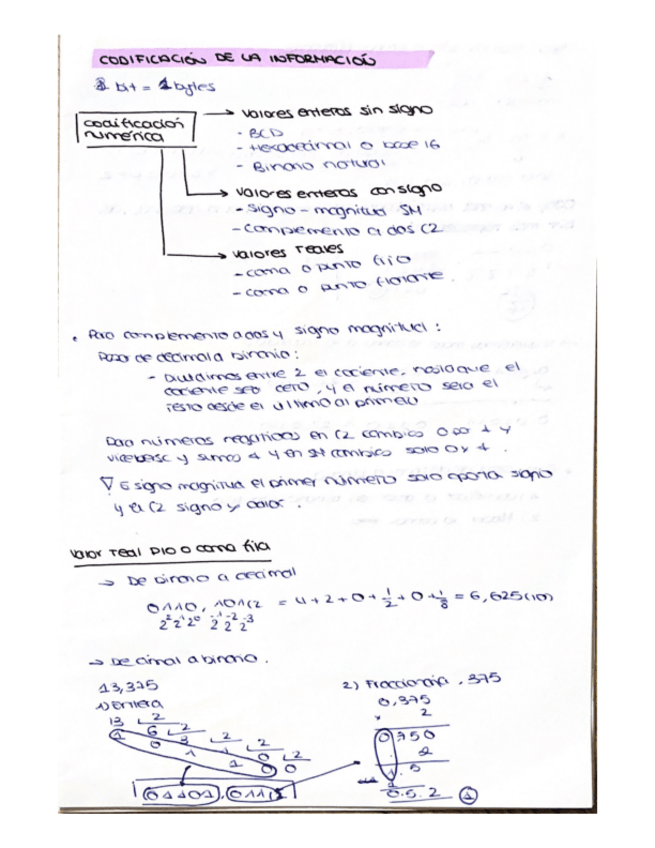 CODIFICACIÓN DE LA INFORMACIÓN
8 bit = 1 bytes
codificación numérica
valores enteros sin signo
- BCD
- Hexadecimal o base 16
- Binario natural
valores enteros con signo
- signo - magnitud SM
- complemento a dos C2
valores reales
- coma o punto fijo
- coma o punto flotante.
• Para complemento a dos y signo magnitud:
Pasar de decimal a binario:
- Dividimos entre 2 el cociente, hasta que el
cociente sea cero, y el número sera el
resto desde el ultimo al primero
Para números negativos en C2 cambio 0 por 1 y
viceversa y sumo 1 y en SM cambio solo 0 x 1.
signo magnitud el primer número solo aporta signo
y el C2 signo y valor.
Valor real pto o coma fija
→ De binario a decimal
0110,101(2 = 4+2+0+1/2+0+1/8 = 6,625(10)
2² 2¹ 2⁰ 2⁻¹ 2⁻² 2⁻³
→ Decimal a binario.
13,375
1) Entera
13 2
1 6 2
0 3 2
1 1 2
1 0 2
0 0
01101,011(2
2) Fraccionaria .375
0,375
x 2
0750
2
1.5
0.5.2 1